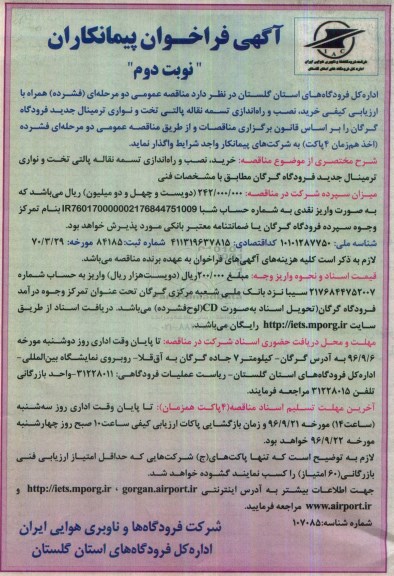 آگهی فراخوان پیمانکاران
"نوبت دوم"
شرکت فرودگاهها و ناوبری هوایی ایران
اداره کل فرودگاه های استان گلستان
اداره کل فرودگاه‌های استان گلستان در نظر دارد مناقصه عمومی دو مرحله‌ای (فشرده) همراه با
ارزیابی کیفی خرید، نصب و راه‌اندازی تسمه نقاله پالتی تخت و نواری ترمینال جدید فرودگاه
گرگان را بر اساس قانون برگزاری مناقصات و از طریق مناقصه عمومی دو مرحله‌ای فشرده
(اخذ همزمان ۴ پاکت) به شرکت‌های پیمانکار واجد شرایط واگذار نماید.
شرح مختصری از موضوع مناقصه: خرید، نصب و راه‌اندازی تسمه نقاله پالتی تخت و نواری
ترمینال جدید فرودگاه گرگان مطابق با مشخصات فنی
میزان سپرده شرکت در مناقصه: ۲۴۲/۰۰۰/۰۰۰ (دویست و چهل و دو میلیون) ریال می‌باشد که
به صورت واریز نقدی به شماره حساب شبا IR760170000002176844751009 بنام تمرکز
وجوه سپرده فرودگاه گرگان یا ضمانتنامه معتبر بانکی مورد پذیرش خواهد بود.
شناسه ملی: ۱۰۱۰۱۲۸۷۷۵۰ کداقتصادی: ۴۱۱۳۱۹۶۳۷۸۱۵ شماره ثبت: ۸۴۱۸۵ مورخه: ۷۰/۳/۲۹
لازم به ذکر است کلیه هزینه‌های آگهی‌های فراخوان به عهده برنده مناقصه می‌باشد.
قیمت اسناد و نحوه واریز وجه: مبلغ ۲۰۰/۰۰۰ریال (دویست‌هزار ریال) واریز به حساب شماره
۲۱۷۶۸۴۴۷۵۲۰۰۷ سیبا نزد بانک ملی شعبه مرکزی گرگان تحت عنوان تمرکز وجوه درآمد
فرودگاه گرگان(تحویل اسناد به‌صورت CD(لوح‌فشرده) می‌باشد. دریافت اسناد از طریق
سایت http://iets.mporg.ir رایگان می‌باشد.
مهلت و محل دریافت حضوری اسناد شرکت در مناقصه: تا پایان وقت اداری روز دوشنبه مورخه
۹۶/۹/۶ به آدرس گرگان- کیلومتر۷ جاده گرگان به آق‌قلا- روبروی نمایشگاه بین‌المللی-
اداره‌کل فرودگاه‌های استان گلستان- ریاست عملیات فرودگاهی: ۳۱۲۲۸۰۱۱-واحد بازرگانی
تلفن ۳۱۲۲۸۰۱۵ مراجعه فرمایند.
آخرین مهلت تسلیم اسناد مناقصه(۴پاکت همزمان): تا پایان وقت اداری روز سه‌شنبه
(ساعت۱۴) مورخه ۹۶/۹/۲۱ و زمان بازگشایی پاکات ارزیابی کیفی ساعت۱۰ صبح روز چهارشنبه
مورخه ۹۶/۹/۲۲ خواهد بود.
لازم به توضیح است که تنها پاکت‌های(ج) شرکت‌هایی که حداقل امتیاز ارزیابی فنی
بازرگانی(۶۰ امتیاز) را کسب نمایند گشوده خواهد شد.
جهت اطلاعات بیشتر به آدرس اینترنتی http://iets.mporg.ir ، gorgan.airport.ir و
www.airport.ir مراجعه فرمایید.
شماره شناسه: ۱۰۷۰۸۵
شرکت فرودگاه‌ها و ناوبری هوایی ایران
اداره‌کل فرودگاه‌های استان گلستان